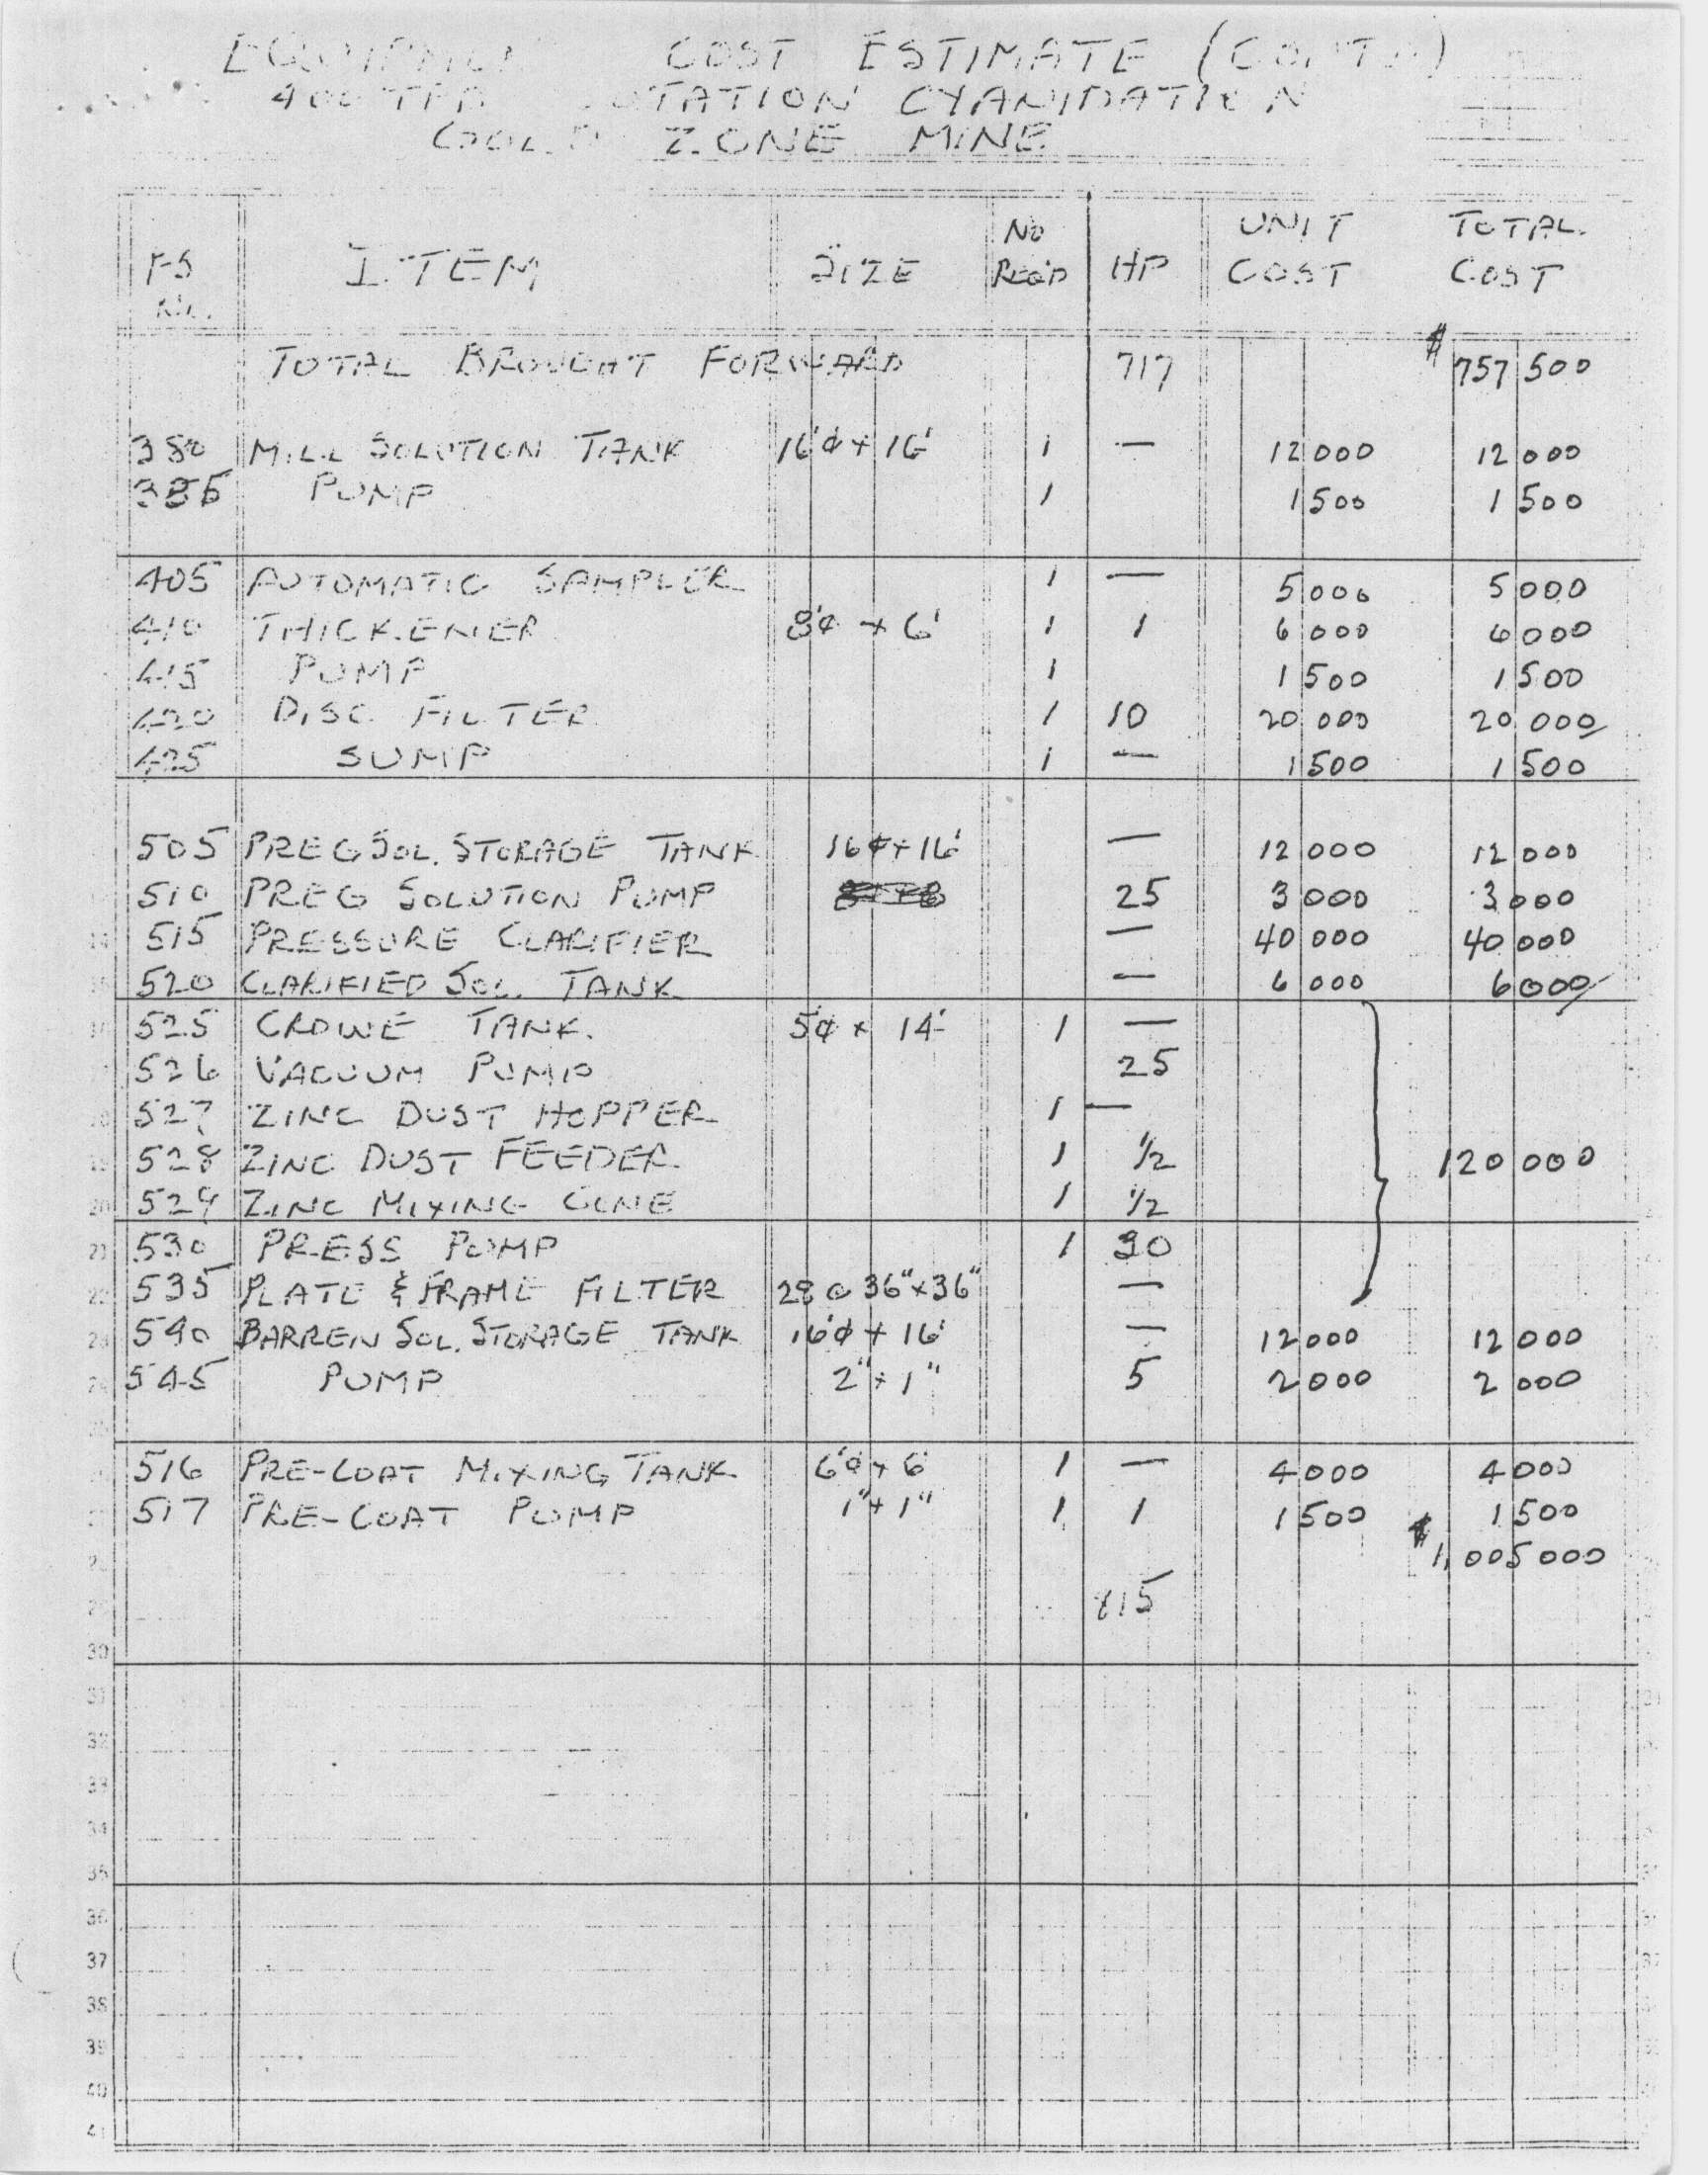 COST ESTIMATE (CONT'D)
400 TPD CYANIDATION
GOLD ZONE MINE
F-S No. ITEM SIZE No REQ'D HP UNIT COST TOTAL COST
TOTAL BROUGHT FORWARD 717 $757 500
380 MILL SOLUTION TANK 16'¢ x 16' 1 — 12 000 12 000
385 PUMP 1 1 500 1 500
405 AUTOMATIC SAMPLER 1 — 5 000 5 000
410 THICKENER 8'¢ x 6' 1 1 6 000 6 000
415 PUMP 1 1 500 1 500
420 DISC FILTER 1 10 20 000 20 000
425 SUMP 1 — 1 500 1 500
505 PREG SOL. STORAGE TANK 16¢ x 16' — 12 000 12 000
510 PREG SOLUTION PUMP 25 3 000 3 000
515 PRESSURE CLARIFIER — 40 000 40 000
520 CLARIFIED SOL. TANK — 6 000 6 000
525 CROWE TANK. 5¢ x 14' 1 —
526 VACUUM PUMP 25
527 ZINC DUST HOPPER 1 —
528 ZINC DUST FEEDER 1 1/2 120 000
529 ZINC MIXING CONE 1 1/2
21 530 PRESS PUMP 1 30
22 535 PLATE & FRAME FILTER 28 @ 36" x 36" —
23 540 BARREN SOL. STORAGE TANK 16'¢ x 16' — 12 000 12 000
24 545 PUMP 2" x 1" 5 2 000 2 000
516 PRE-COAT MIXING TANK 6'¢ x 6' 1 — 4 000 4 000
517 PRE-COAT PUMP 1" x 1" 1 1 1 500 1 500
$1,005 000
815
30
31
32
33
34
35
36
37
38
39
40
41